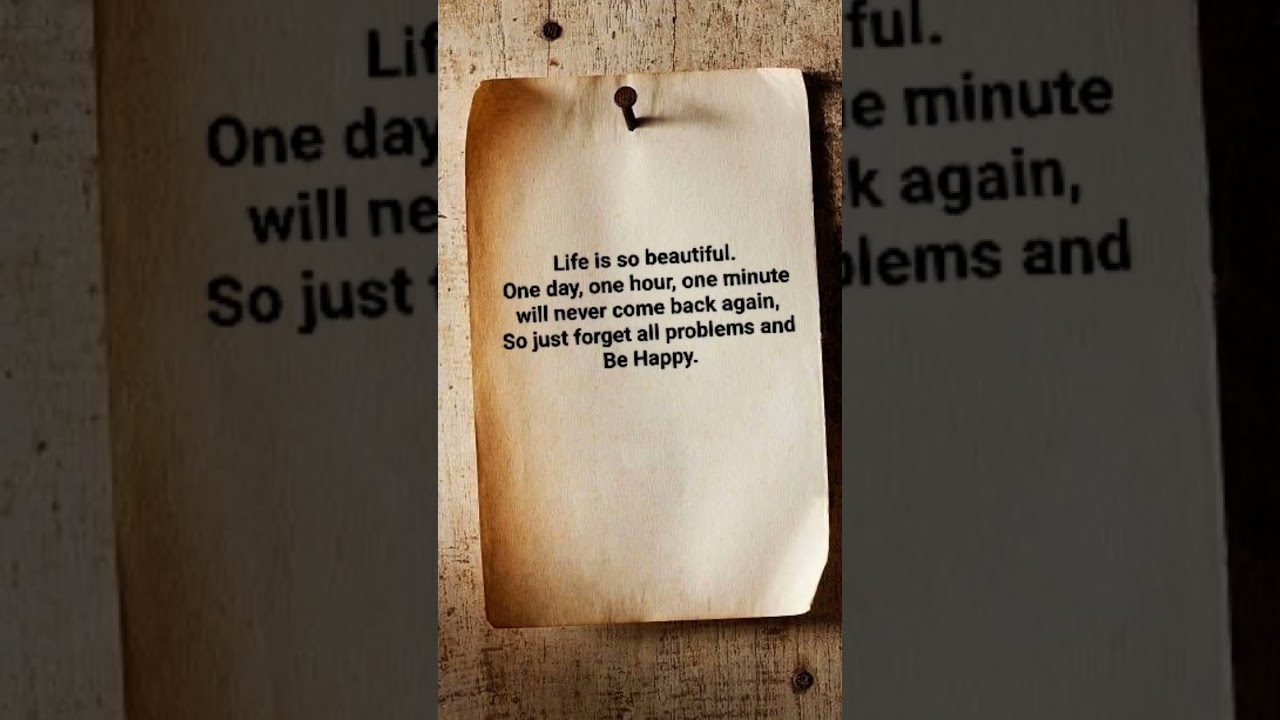 Life is so beautiful.
One day, one hour, one minute
will never come back again,
So just forget all problems and
Be Happy.